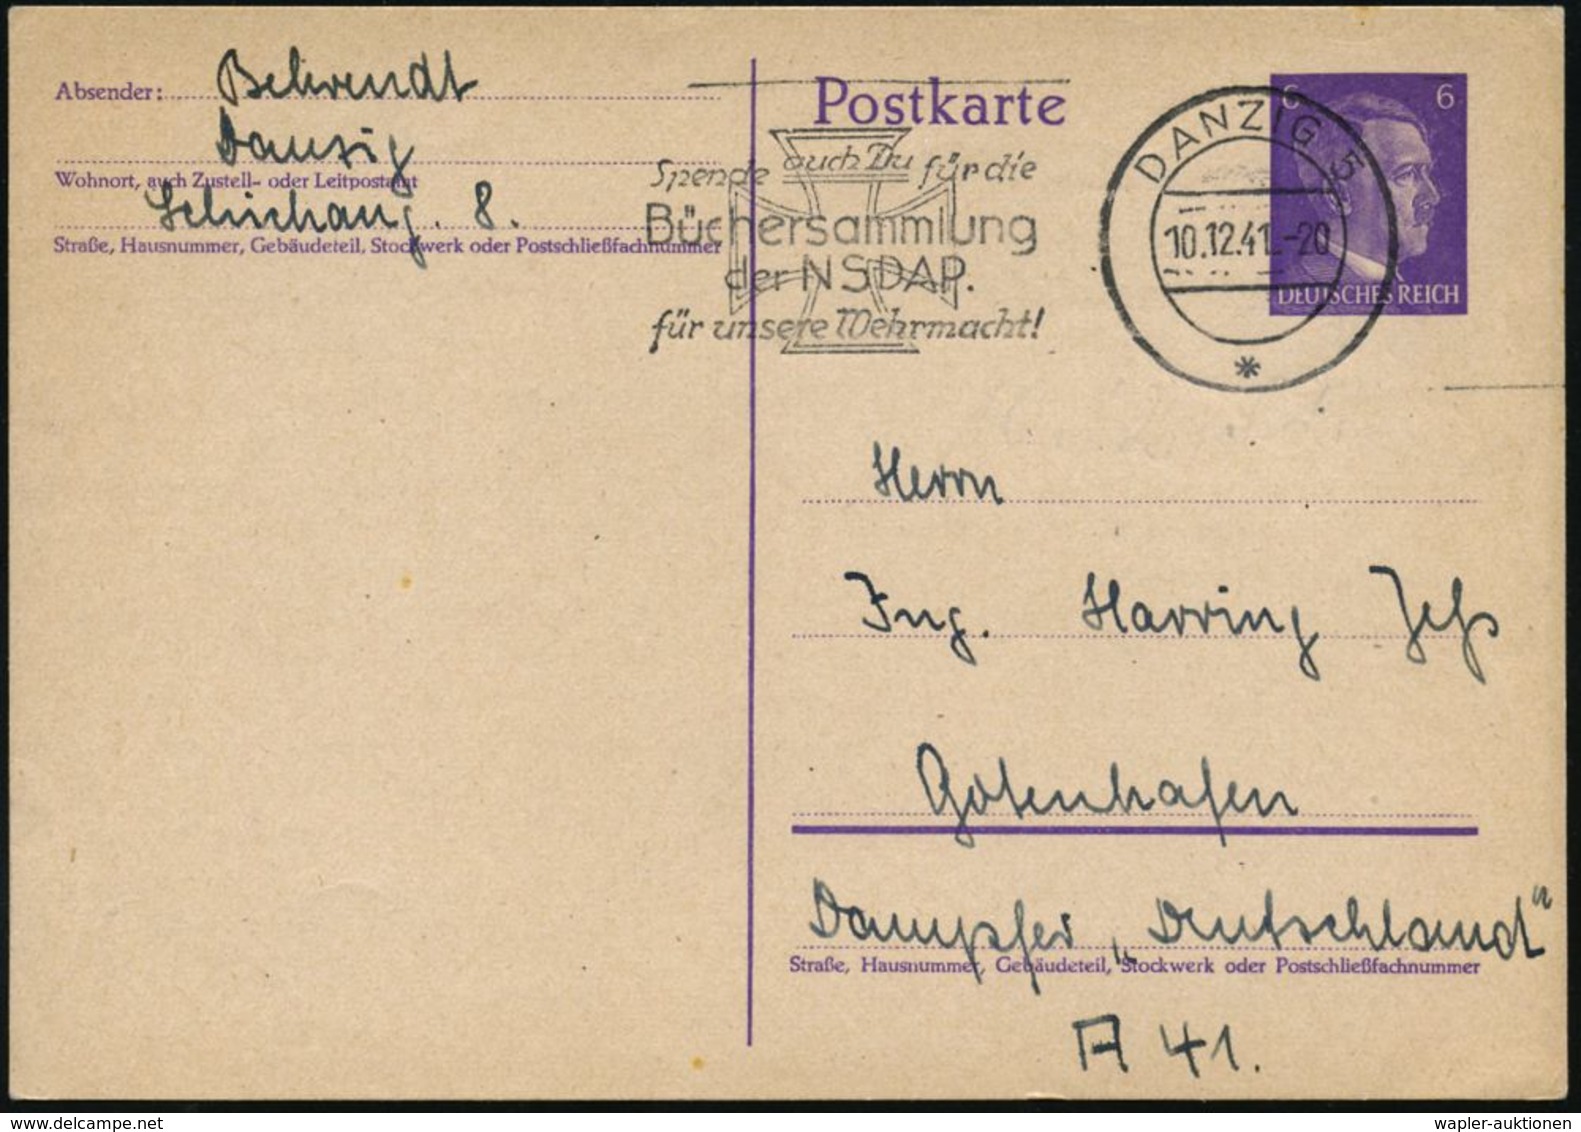 Absender: Behrendt
Danzig
Wohnort, auch Zustell- oder Leitpostamt
Schichaug. 8.
Straße, Hausnummer, Gebäudeteil, Stockwerk oder Postschließfachnummer
Postkarte
Spende auch Du für die
Büchersammlung
der NSDAP.
für unsere Wehrmacht!
DANZIG 5
10.12.41.-20
*
6 6
DEUTSCHES REICH
Herrn
Ing. Harring
Gotenhafen
Dampfer „Deutschland“
Straße, Hausnummer, Gebäudeteil, Stockwerk oder Postschließfachnummer
A 41.
wapler-auktionen